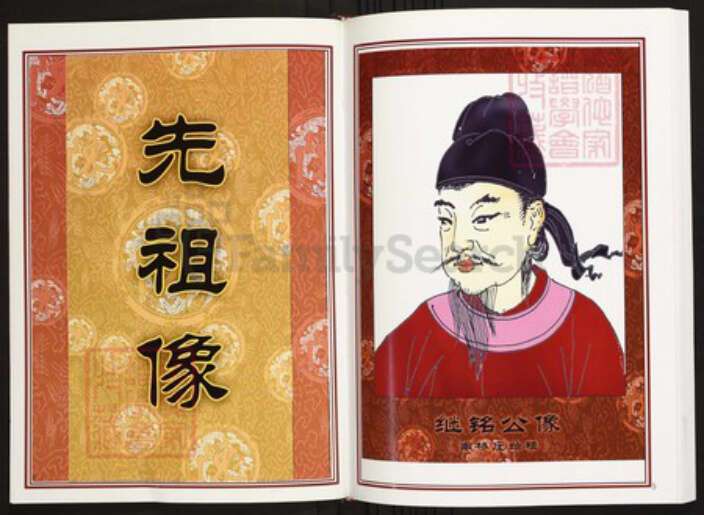 先祖像
继铭公像
FamilySearch